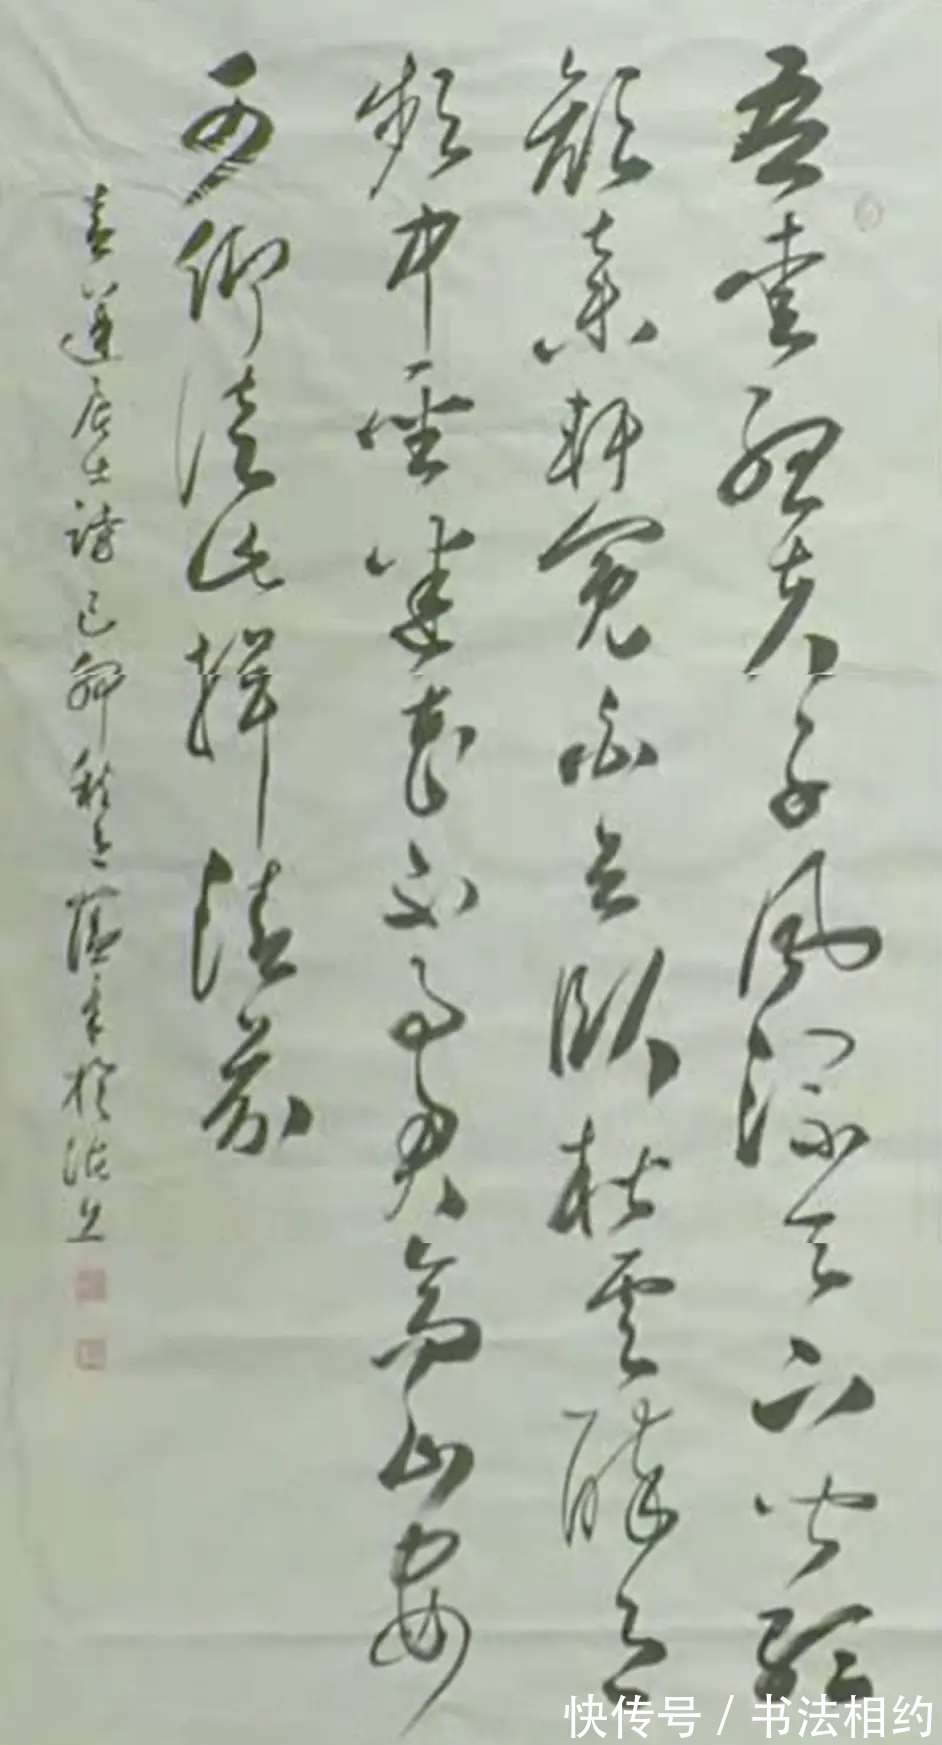 吾爱孟夫子风流天下闻红
颜弃轩冕白首卧松云醉月
频中圣迷花不事君高山安
可仰徒此揖清芬
青莲居士诗己卯秋
快传号 / 书法相约